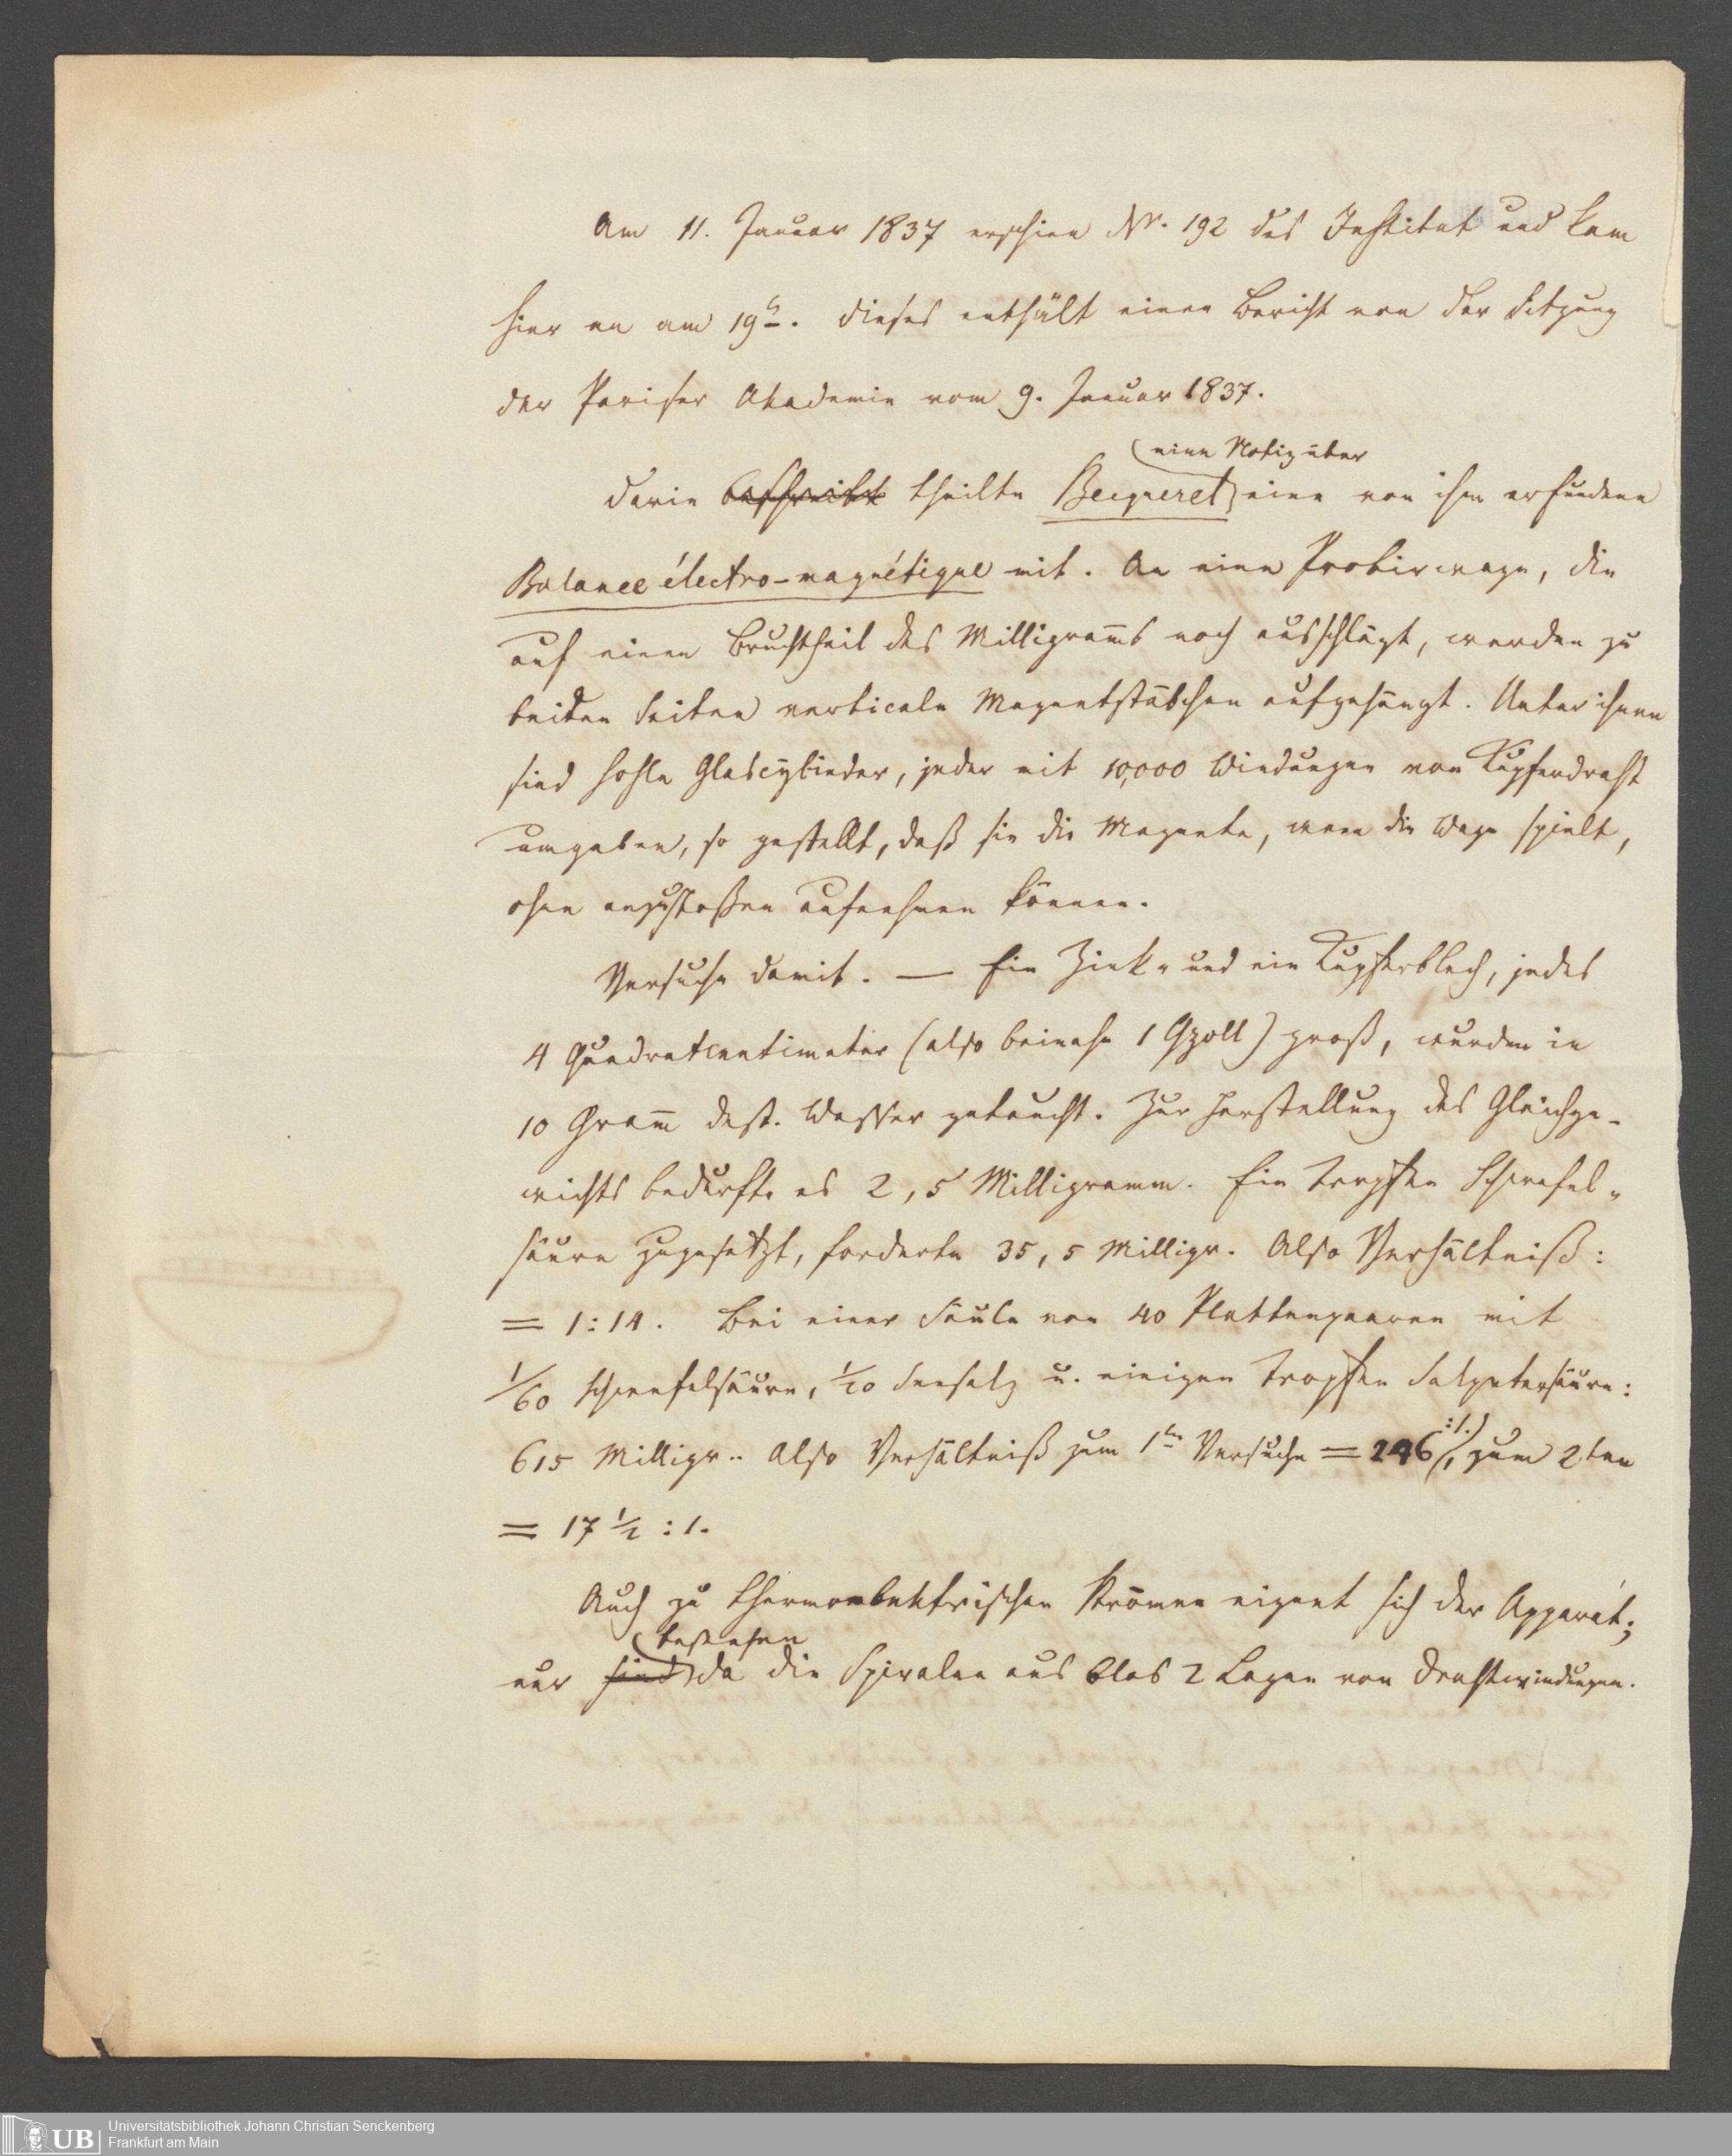 Am 11. Januar 1837 erschien Nr. 192 des Institut und kam
hier an am 19ⁿ. Dieses enthält einen Bericht von der Sitzung
der Pariser Akademie vom 9. Januar 1837.
eine Notiz über
Darin beschreibt theilte Becqueret eine von ihm erfundene
Balance électro-magnétique mit. An eine Probirwage, die
auf einen Bruchtheil des Milligram̄s noch ausschlägt, werden zu
beiden Seiten verticale Magnetstäbchen aufgehängt. Unter ihnen
sind hohle Glascylinder, jeder mit 10,000 Windungen von Kupferdraht
umgeben, so gestellt, daß sie die Magnete, wenn die Wage spielt,
ohne anzustoßen aufnehmen können.
Versuche damit. — Ein Zink- und ein Kupferblech, jedes
4 Quadratcentimeter (also beinahe 1 Qzoll) groß, wurden in
10 Gram̄ dest. Wasser getaucht. Zur Herstellung des Gleichge-
wichts bedurfte es 2,5 Milligramm. Ein Tropfen Schwefel-
säure zugesetzt, forderte 35,5 Milligr. Also Verhältniß:
= 1:14. Bei einer Säule von 40 Plattenpaaren mit
1/60 Schwefelsäure, 1/20 Seesalz u. einigen Tropfen Salpetersäure:
615 Milligr.. Also Verhältniß zum 1ten Versuche = 246 :1., zum 2ten
= 17 ½ : 1.
Auch zu thermoelektrischen Strömen eignet sich der Apparat;
bestehen
nur sind da die Spiralen aus blos 2 Lagen von Drahtwindungen.
UB Universitätsbibliothek Johann Christian Senckenberg
Frankfurt am Main